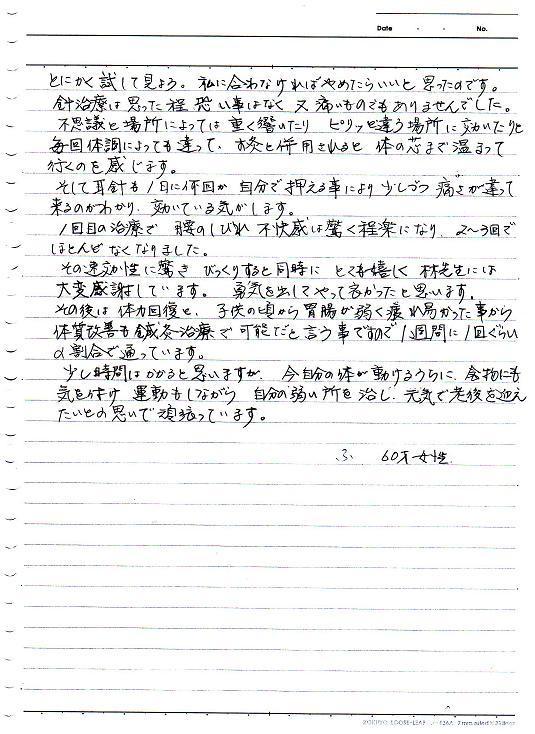 Date ・ ・ No.
とにかく試して見よう。私に合わなければやめたらいいと思ったのです。
針治療は思った程恐い事はなく又痛いものでもありませんでした。
不思議と場所によっては重く響いたりピリッと違う場所に効いたりと
毎回体調によっても違って、お灸と併用されると体の芯まで温まって
行くのを感じます。
そして耳針も1日に何回か自分で押える事により少しづつ痛さが違って
来るのがわかり、効いている気がします。
1回目の治療で腰のしびれ不快感は驚く程楽になり、2〜3回で
ほとんどなくなりました。
その速効性に驚きびっくりすると同時にとても嬉しく林先生には
大変感謝しています。勇気を出してやって良かったと思います。
その後は体力回復と、子供の頃から胃腸が弱く疲れ易かった事から
体質改善も鍼灸治療で可能だと言う事ですので1週間に1回ぐらい
の割合で通っています。
少し時間はかかると思いますが、今自分の体が動けるうちに、食物にも
気を付け運動もしながら自分の弱い所を治し、元気で老後を迎え
たいとの思いで頑張っています。
ふ 60才女性
KOKUYO LOOSE-LEAF